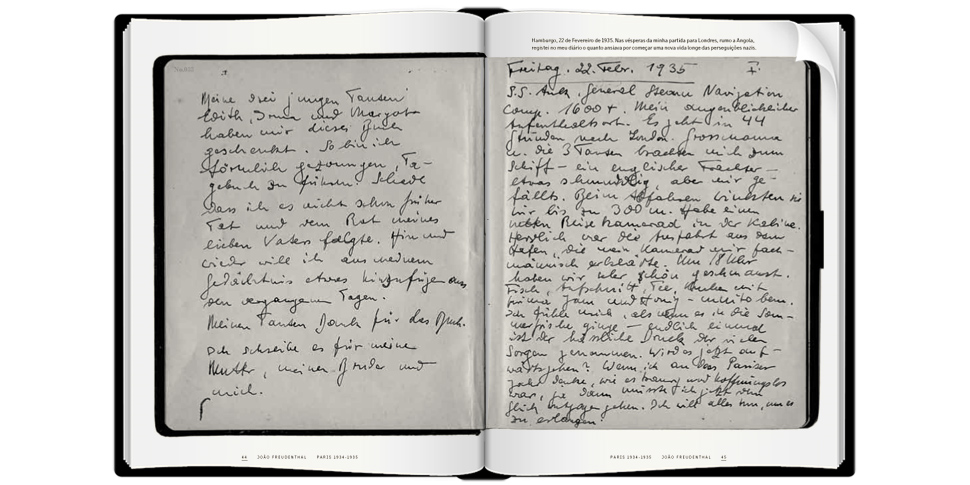 Meine drei jungen Tanten
Edith, Irma und Margot
haben mir dieses Buch
geschenkt. So bin ich
förmlich gezwungen, Ta-
gebuch zu führen. Schade
dass ich es nicht schon früher
Tat und dem Rat meines
lieben Vaters folgte. Hin und
wieder will ich aus meinem
Gedächtnis etwas hinzufügen aus
den vergangenen Tagen.
Meinen Tanten Dank für das Buch.
Ich schreibe es für meine
Mutter, meinen Bruder und
mich.
44 JOÃO FREUDENTHAL PARIS 1934-1935
Hamburgo, 22 de Fevereiro de 1935. Nas vésperas da minha partida para Londres, rumo a Angola,
registei no meu diário o quanto ansiava por começar uma nova vida longe das perseguições nazis.
Freitag. 22. Febr. 1935 I.
S.S. General Steam Navigation
Comp. 1600 t. Mein augenblicklicher
Aufenthaltsort. Es geht in 44
Stunden nach London. Grossmama
u. die 3 Tanten brachten mich zum
Schiff – ein englischer Frachter –
etwas schmuddelig, aber mir ge-
fällts. Beim Abfahren winkten sie
mir bis zu 300 m. Habe einen
netten Reisekamerad in der Kabine.
Herrlich war die Ausfahrt aus dem
Hafen, die mein Kamerad mir fach-
männisch erklärte. Um 18 Uhr
haben wir sehr schön geschmaust.
Fisch, Aufschnitt, Tee, Kuchen mit
prima Jam und Honig – muito bem.
Ich fühle mich, als wenn es in die Som-
merfrische ginge – endlich einmal
ist der hässliche Druck der vielen
Sorgen genommen. Wird es jetzt auf-
wärtsgehen? Wenn ich an das Pariser
Jahr denke, wie es traurig und hoffnungslos
war, ja dann müsste ich jetzt dem
Glück entgegen gehen. Ich will alles tun, um es
zu erlangen!
PARIS 1934-1935 JOÃO FREUDENTHAL 45